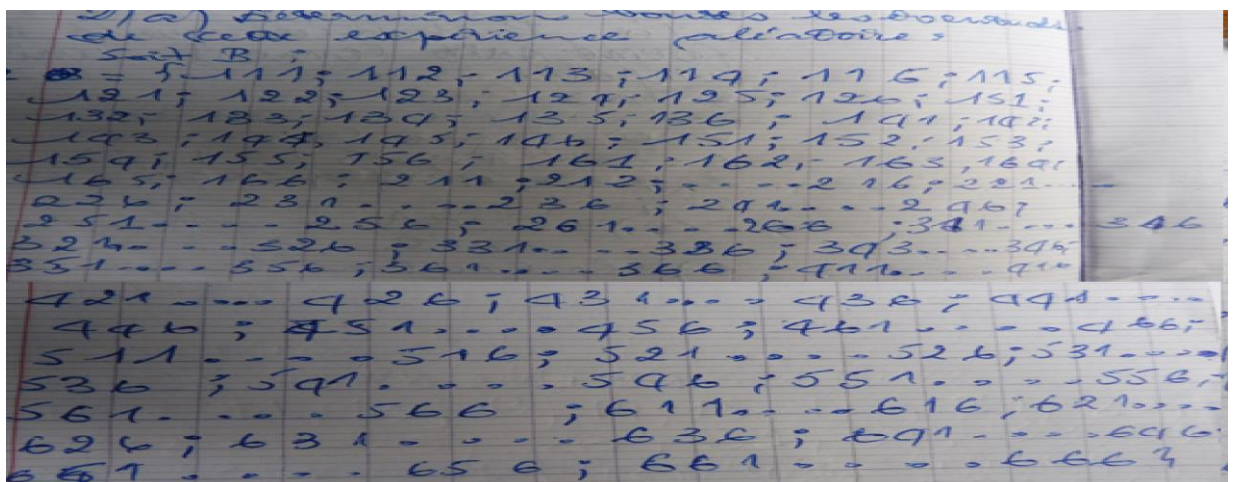 2/a) Déterminons toutes les éventualités
de cette expérience aléatoire :
Soit B :
= { 111; 112; 113; 114; 116; 115;
121; 122; 123; 124; 125; 126; 131;
132; 133; 134; 135; 136; 141; 142;
143; 144; 145; 146; 151; 152; 153;
154; 155; 156; 161; 162; 163, 164;
165; 166; 211; 212; ..... 216; 221.....
226; 231..... 236; 241.... 246;
251..... 256; 261.... 266; 341..... 346
321..... 326; 331..... 336; 343.... 346;
351.... 356; 361.... 366; 411.... 416
421..... 426; 431.... 436; 441.....
446; 451.... 456; 461..... 466;
511..... 516; 521..... 526; 531.....
536; 541..... 546; 551..... 556;
561..... 566; 611.... 616; 621....
626; 631..... 636; 641.... 646.
651..... 656; 661..... 666}